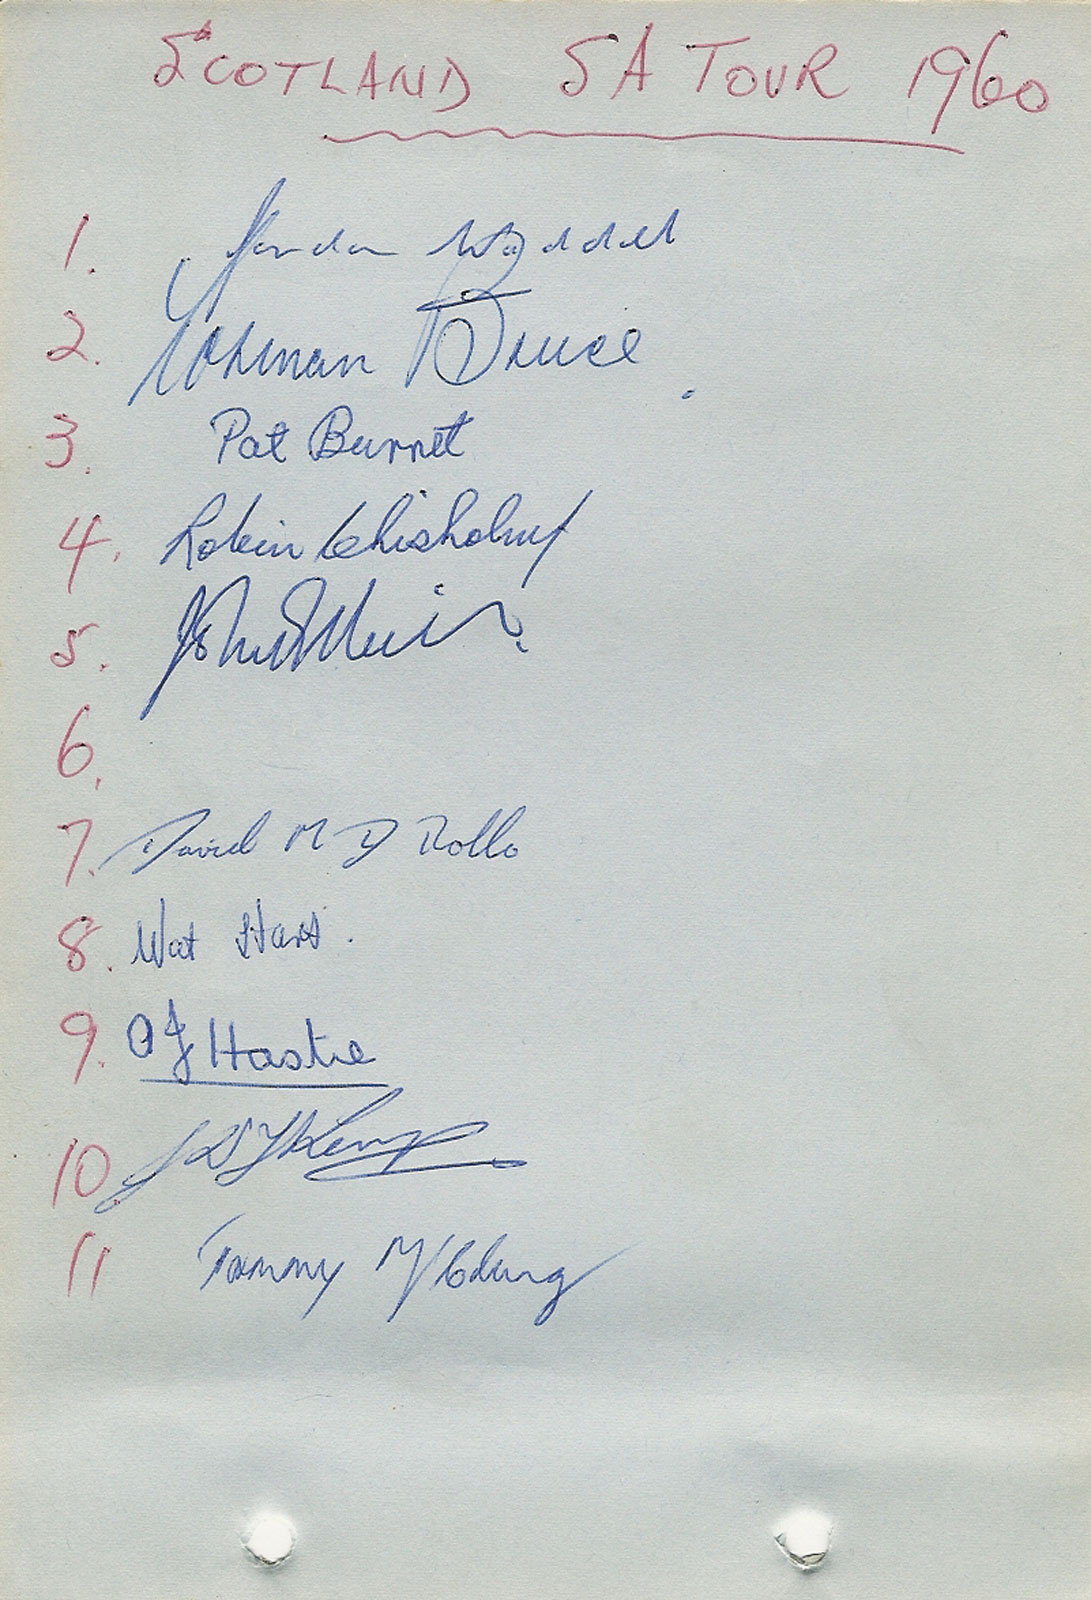 SCOTLAND SA TOUR 1960
1. Gordon Waddell
2. Norman Bruce
3. Pat Burnet
4. Robin Chisholm
5. John Muir
6.
7. David M D Rollo
8. Wat Hart.
9. OJ Hastie
10 Kemp
11 Tommy McClung